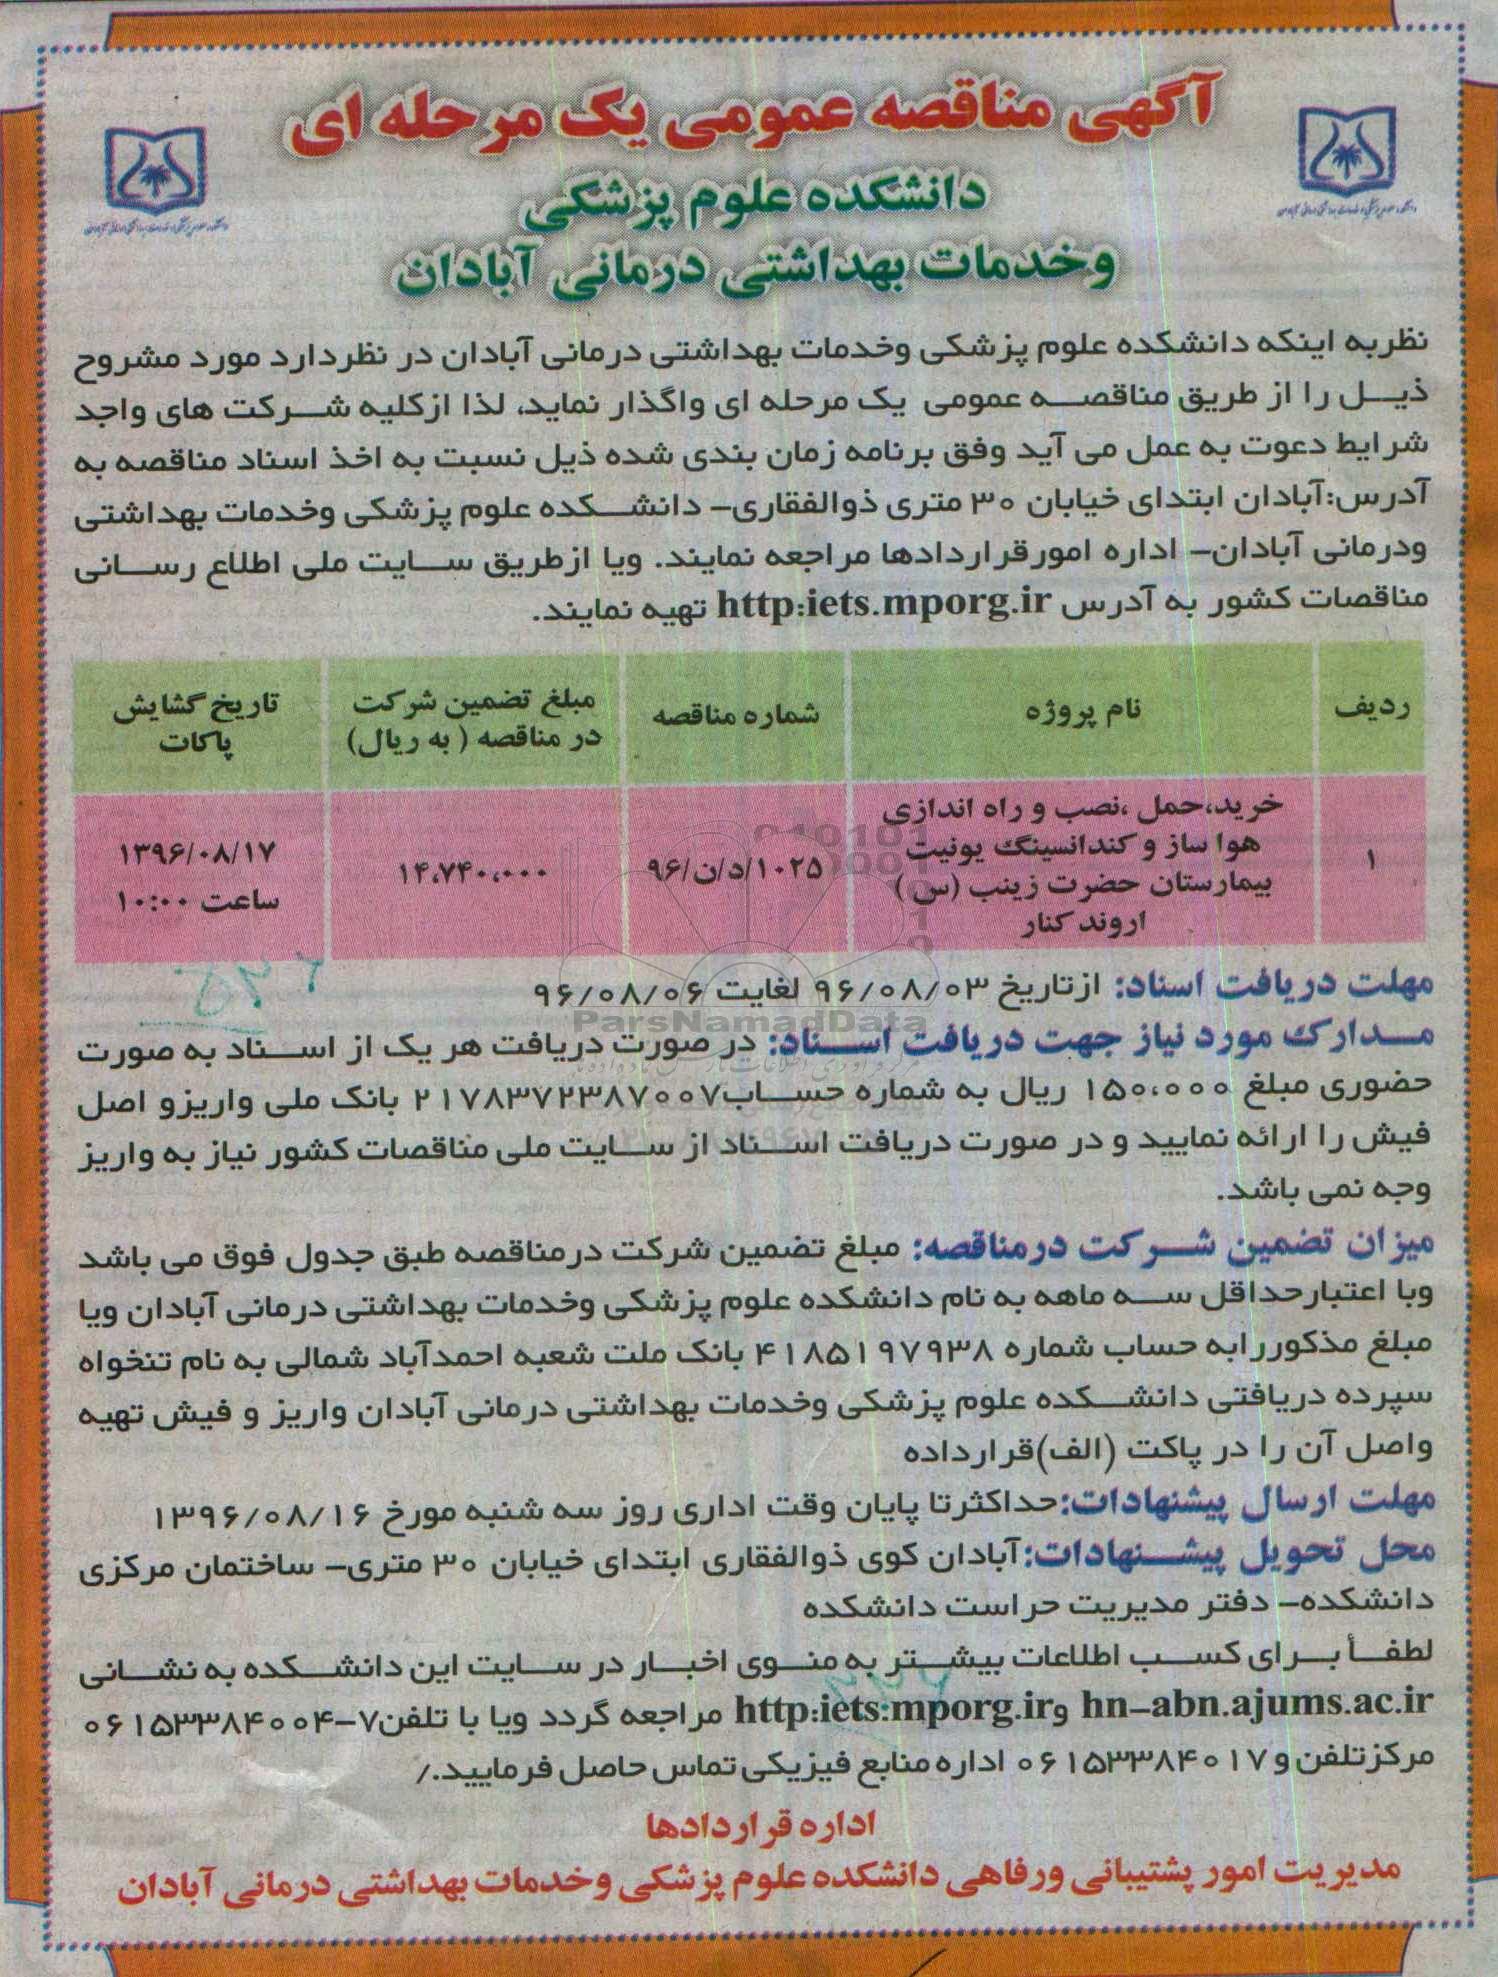 آگهی مناقصه عمومی یک مرحله ای
دانشکده علوم پزشکی
وخدمات بهداشتی درمانی آبادان
نظربه اینکه دانشکده علوم پزشکی وخدمات بهداشتی درمانی آبادان در نظردارد مورد مشروح
ذیل را از طریق مناقصه عمومی یک مرحله ای واگذار نماید، لذا ازکلیه شرکت های واجد
شرایط دعوت به عمل می آید وفق برنامه زمان بندی شده ذیل نسبت به اخذ اسناد مناقصه به
آدرس:آبادان ابتدای خیابان ۳۰ متری ذوالفقاری- دانشکده علوم پزشکی وخدمات بهداشتی
ودرمانی آبادان- اداره امورقراردادها مراجعه نمایند. ویا ازطریق سایت ملی اطلاع رسانی
مناقصات کشور به آدرس http:iets.mporg.ir تهیه نمایند.
ردیف
نام پروژه
شماره مناقصه
مبلغ تضمین شرکت
در مناقصه ( به ریال)
تاریخ گشایش
پاکات
۱
خرید،حمل ،نصب و راه اندازی
هوا ساز و کندانسینگ یونیت
بیمارستان حضرت زینب (س )
اروند کنار
۱۰۲۵/د/ن/۹۶
۱۴،۷۴۰،۰۰۰
۱۳۹۶/۰۸/۱۷
ساعت ۱۰:۰۰
مهلت دریافت اسناد: ازتاریخ ۹۶/۰۸/۰۳ لغایت ۹۶/۰۸/۰۶
ParsNamadData
مدارک مورد نیاز جهت دریافت اسناد: در صورت دریافت هر یک از اسناد به صورت
حضوری مبلغ ۱۵۰،۰۰۰ ریال به شماره حساب۲۱۷۸۳۷۲۳۸۷۰۰۷ بانک ملی واریزو اصل
فیش را ارائه نمایید و در صورت دریافت اسناد از سایت ملی مناقصات کشور نیاز به واریز
وجه نمی باشد.
میزان تضمین شرکت درمناقصه: مبلغ تضمین شرکت درمناقصه طبق جدول فوق می باشد
وبا اعتبارحداقل سه ماهه به نام دانشکده علوم پزشکی وخدمات بهداشتی درمانی آبادان ویا
مبلغ مذکوررابه حساب شماره ۴۱۸۵۱۹۷۹۳۸ بانک ملت شعبه احمدآباد شمالی به نام تنخواه
سپرده دریافتی دانشکده علوم پزشکی وخدمات بهداشتی درمانی آبادان واریز و فیش تهیه
واصل آن را در پاکت (الف)قرارداده
مهلت ارسال پیشنهادات:حداکثرتا پایان وقت اداری روز سه شنبه مورخ ۱۳۹۶/۰۸/۱۶
محل تحویل پیشنهادات:آبادان کوی ذوالفقاری ابتدای خیابان ۳۰ متری- ساختمان مرکزی
دانشکده- دفتر مدیریت حراست دانشکده
لطفأ برای کسب اطلاعات بیشتر به منوی اخبار در سایت این دانشکده به نشانی
hn-abn.ajums.ac.ir وhttp:iets:mporg.ir مراجعه گردد ویا با تلفن۷-۰۶۱۵۳۳۸۴۰۰۴
مرکزتلفن و ۰۶۱۵۳۳۸۴۰۱۷ اداره منابع فیزیکی تماس حاصل فرمایید./
اداره قراردادها
مدیریت امور پشتیبانی ورفاهی دانشکده علوم پزشکی وخدمات بهداشتی درمانی آبادان